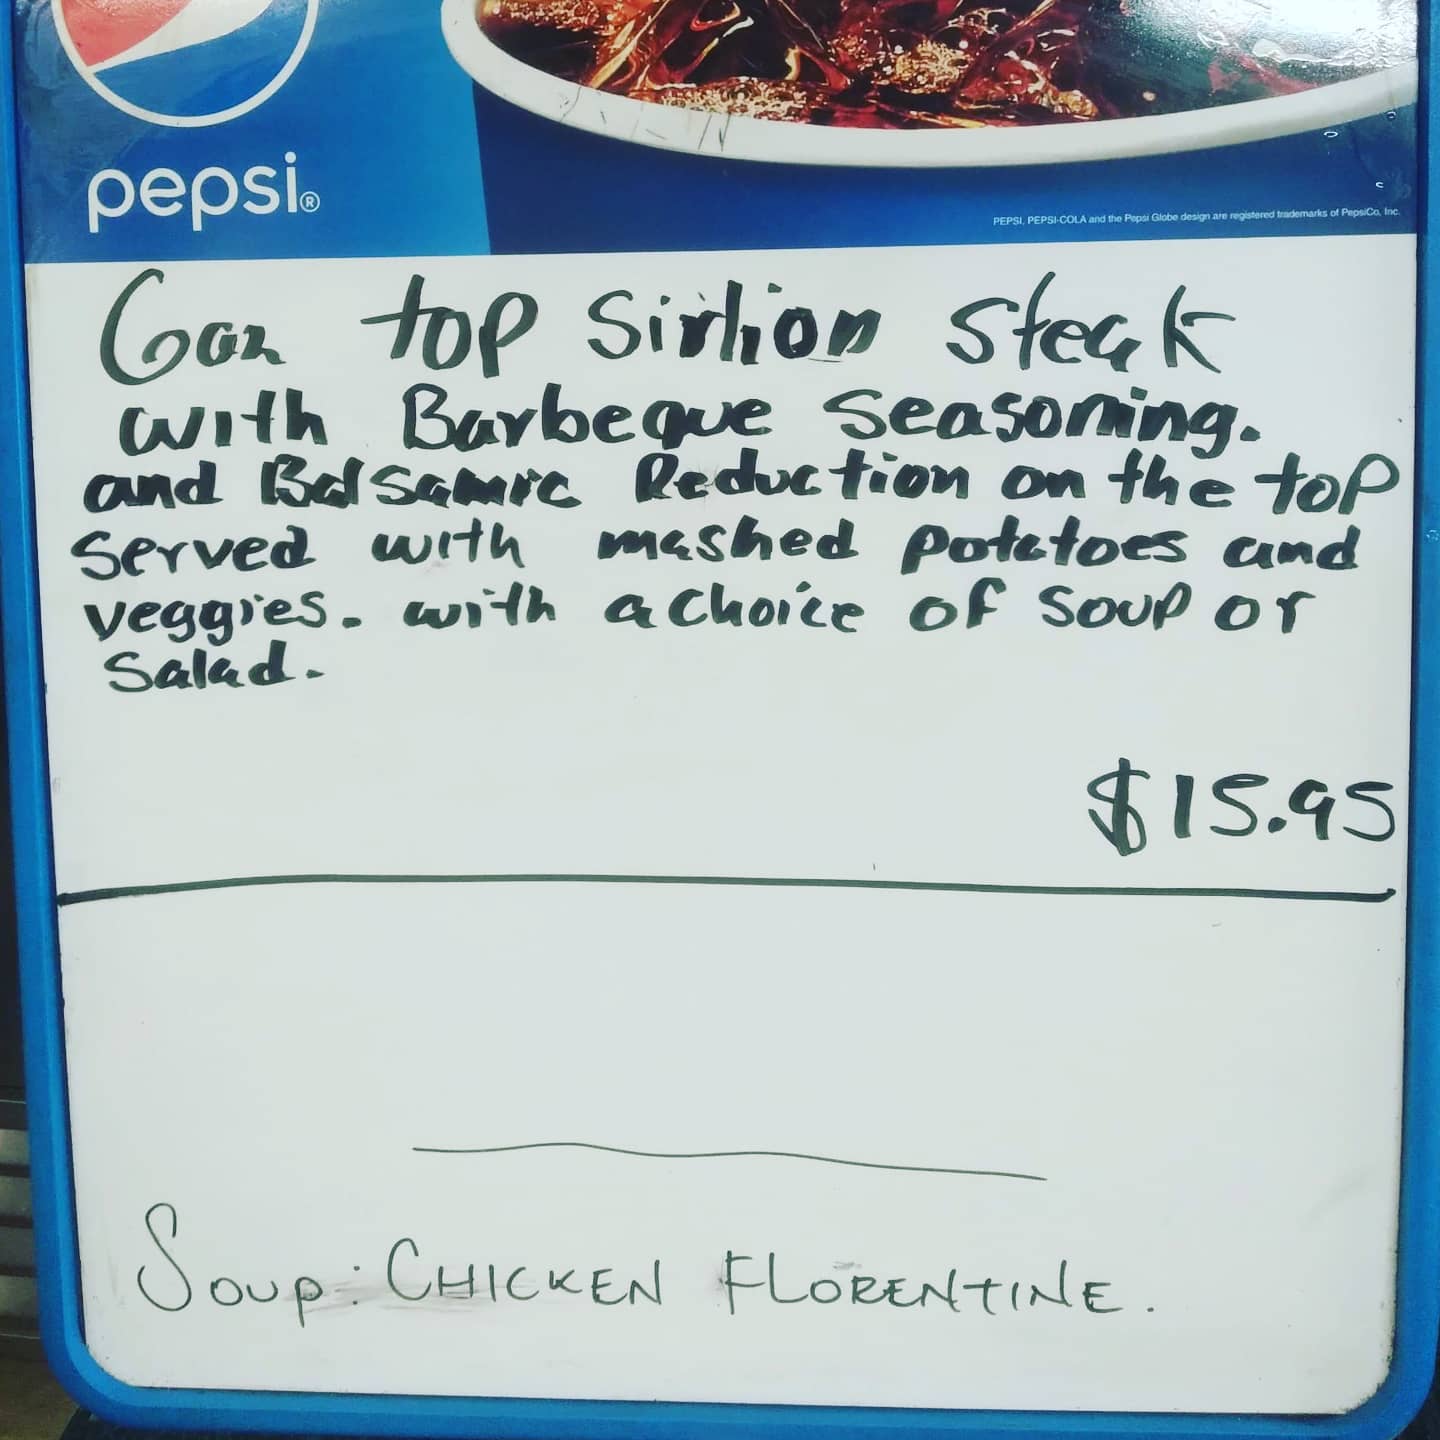 pepsi®
PEPSI, PEPSI-COLA and the Pepsi Globe design are registered trademarks of PepsiCo, Inc.
6oz top Sirlion Steak
with Barbeque Seasoning.
and Balsamic Reduction on the top
Served with mashed potatoes and
veggies. with a choice of Soup or
Salad.
$15.95
Soup: CHICKEN FLORENTINE.